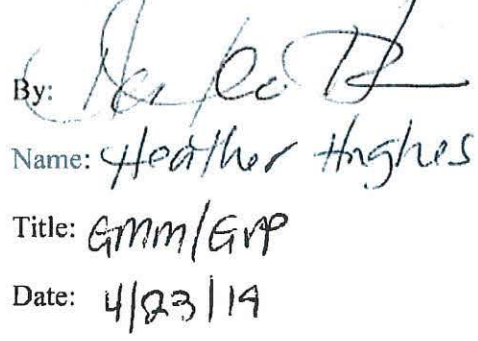 By:
Name: Heather Hughes
Title: GMM/GVP
Date: 4/23/19